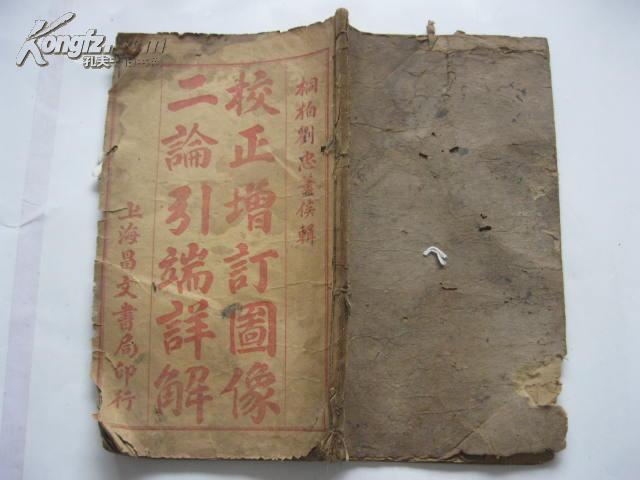 桐柏劉忠蓋侯輯
校正增訂圖像
二論引端詳解
上海昌文書局印行
Kongfz.com
孔夫子旧书网